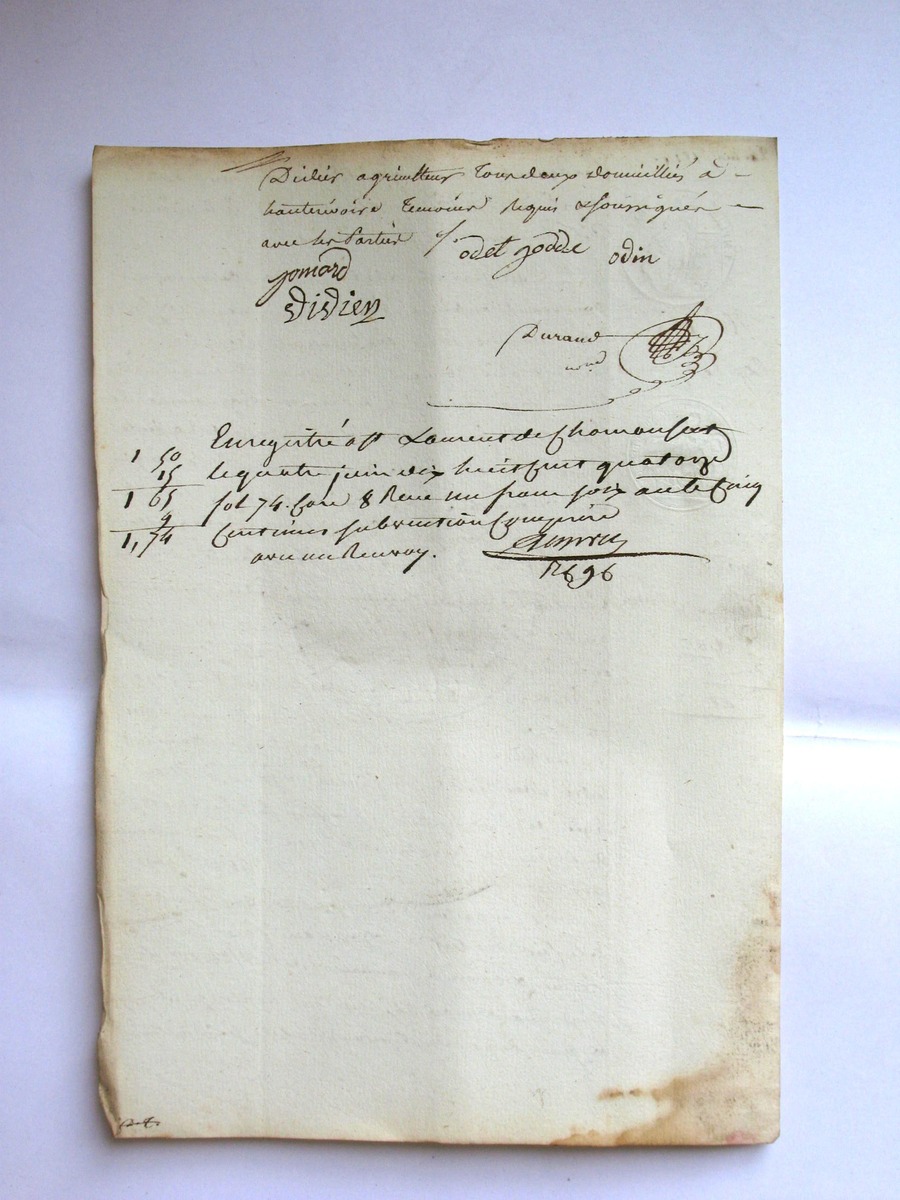 Didier agriculteur tous deux domiciliés à
hauterivoire temoins requis & soussignés
avec les Parties
odet godde odin
jomard
Didier
Durand
Enregistré à St Laurent de Chamousset
1 50
le quatre juin dix huit cent quatorze
15
1 65
fol 74. Case 8 Recu un franc soix ante Cinq
9
Centimes subvention Comprise
1,74
avec un Renvoy.